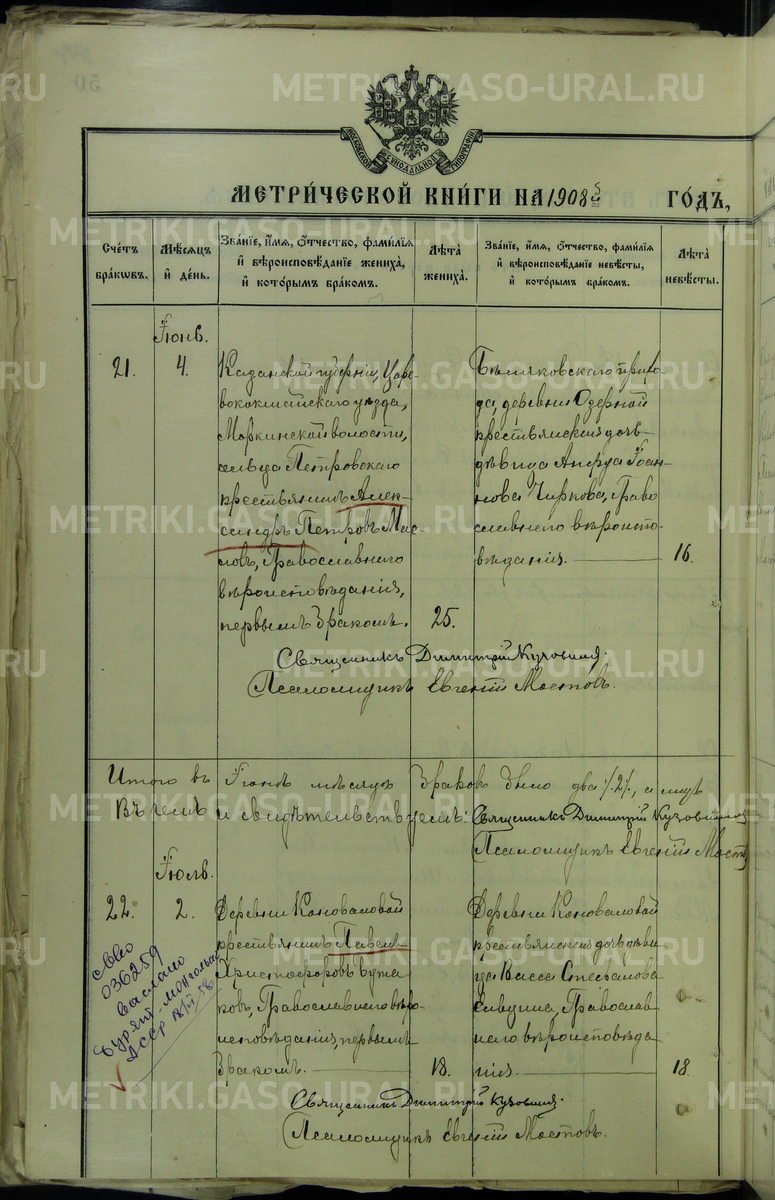 50
МОСКОВСКОЙ СѴНОДАЛЬНОЙ ТИПОГРАФІИ
МЕТРИ́ЧЕСКОЙ КНИ́ГИ НА 1908й ГО́ДЪ,
Сче́тъ бра́кѡвъ.
Мѣ́сѧцъ и́ де́нь.
Зва́нїе, и́мѧ, ѻ́тчество, фами́лїѧ и́ вѣроисповѣ́данїе жениха̀, и́ кото́рымъ бра́комъ.
Лѣ́та жениха̀.
Зва́нїе, и́мѧ, ѻ́тчество, фами́лїѧ и́ вѣроисповѣ́данїе невѣ́сты, и́ кото́рымъ бра́комъ.
Лѣ́та невѣ́сты.
Іюнь.
21.
4.
Казанской губерніи, Царе-
вококшайскаго уѣзда,
Моркинской волости,
сельца Петровскаго
крестьянинъ Алек-
сандръ Петровъ Мас-
ловъ, Православнаго
вѣроисповѣданія,
первымъ бракомъ.
25.
Бѣляковскаго прихо-
да, деревни Озерной
крестьянская дочь
дѣвица Анфуса Іоан-
нова Чиркова, Право
славнаго вѣроиспо-
вѣданія.
16.
Священникъ Димитрій
Псаломщикъ Евгеній Мостовъ.
Итого въ Іюнѣ мѣсяцѣ браковъ было два /2/,
Въ чемъ и свидѣтельствуемъ: Священникъ Димитрій
Псаломщикъ Евгеній Мост
Іюль.
22.
2.
Деревни Коноваловой
крестьянинъ Павелъ
Христофоровъ Бута
ковъ, Православнаго вѣро-
исповѣданія, первымъ
бракомъ.
18.
Деревни Коноваловой
крестьянская дочь дѣви
ца Васса Стефанова
Православ
наго вѣроисповѣда
нія.
18.
Священникъ Димитрій
Псаломщикъ Евгеній Мостовъ.
св-во
036259
выслано
Бурят-Монгольск
АССР
METRIKI.GASO-URAL.RU